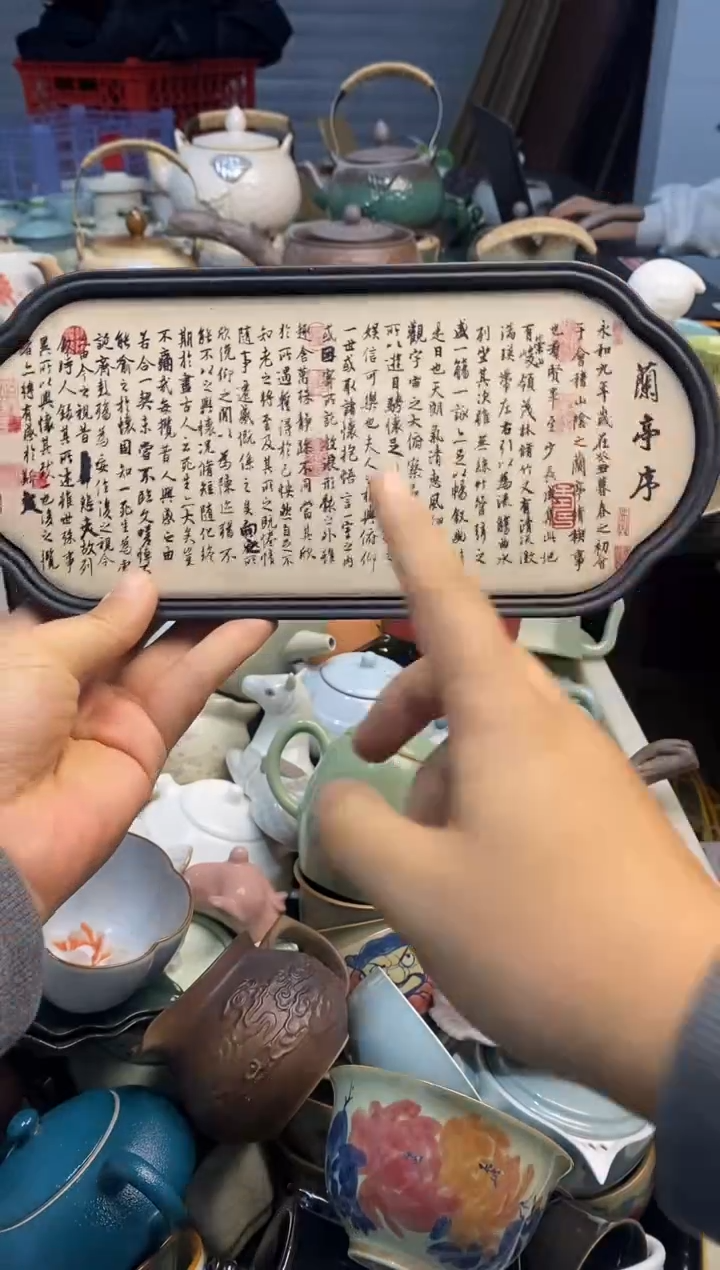 蘭亭序
永和九年歲在癸丑暮春之初會
于會稽山陰之蘭亭脩稧事
也羣賢畢至少長咸集此地
有崇山峻領茂林脩竹又有清流激
湍暎帶左右引以為流觴曲水
列坐其次雖無絲竹管弦之
盛一觴一詠亦足以暢敘幽情
是日也天朗氣清惠風和
觀宇宙之大俯察
所以遊目騁懷足之
娛信可樂也夫人相與俯仰
一世或取諸懷抱悟言一室之內
或因寄所託放浪形骸之外雖
趣舍萬殊靜躁不同當其欣
於所遇暫得於己怏然自足不
知老之將至及其所之既惓情
隨事遷感慨係之矣向之所
欣俛仰之間以為陳迹猶不
能不以之興懷況脩短隨化終
期於盡古人云死生亦大矣豈
不痛哉每攬昔人興感之由
若合一契未嘗不臨文嗟悼不
能喻之於懷固知一死生為虛
誕齊彭殤為妄作後之視今
由今之視昔悲夫故列
時人錄其所述雖世殊事
異所以興懷其致一也後之攬
者亦將有感於斯文